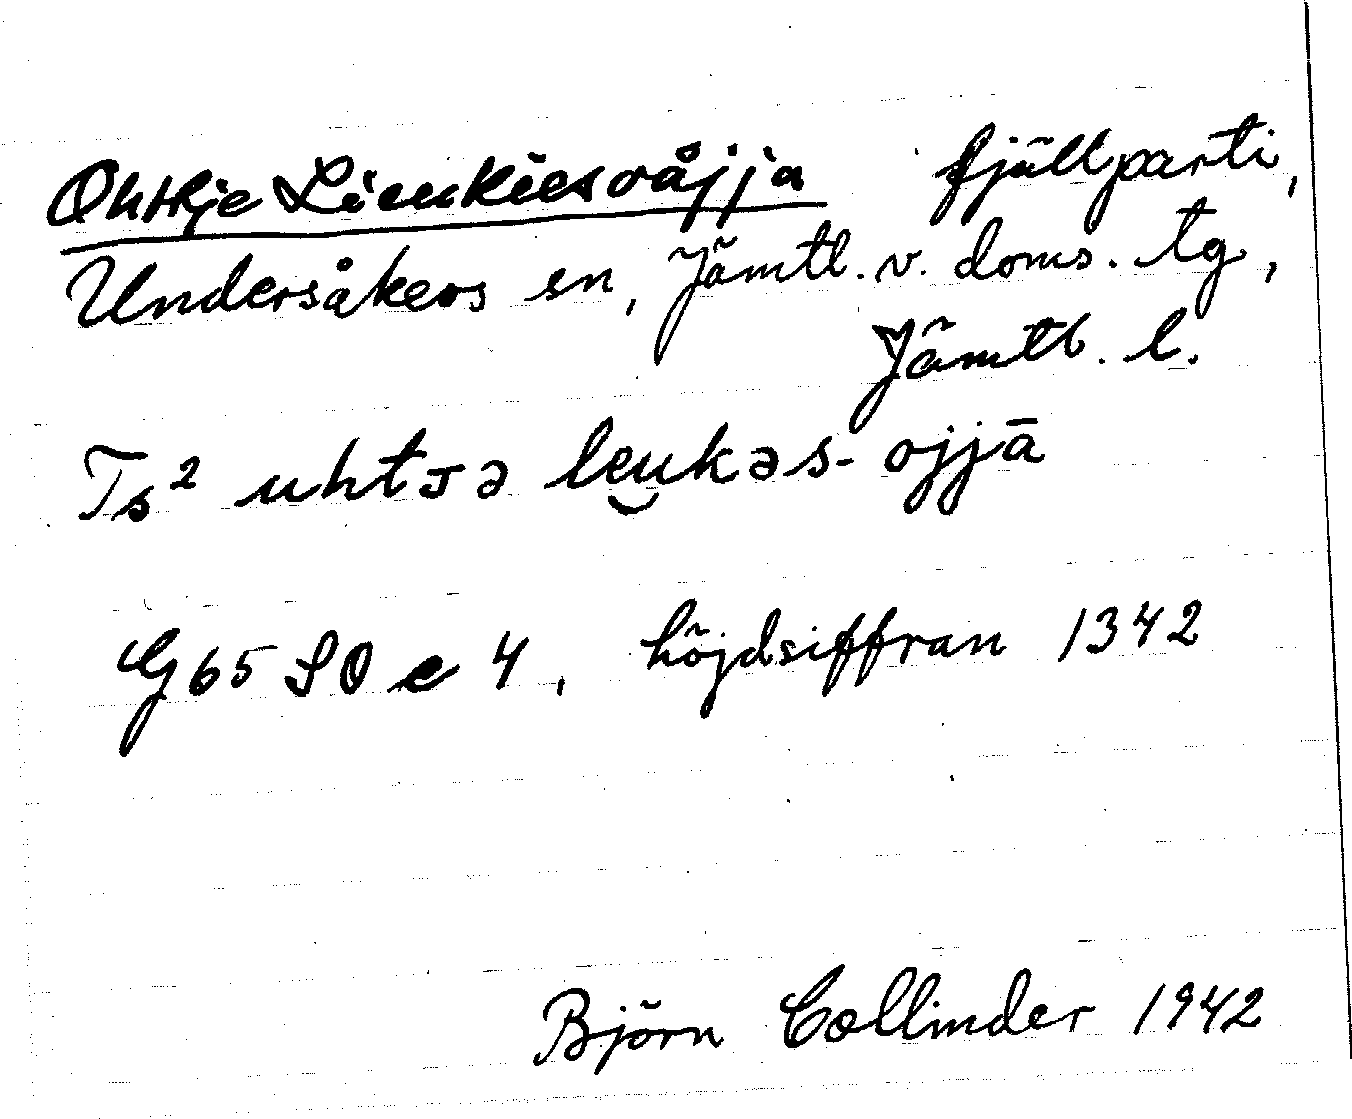 Ohtsje Lieukiesoåjja fjällparti,
Undersåkers sn, Jämtl. v. doms. tg,
Jämtl. l.
Ts² uhtᴊə leu̮kəs-ojjā
G65 SO e 4, höjdsiffran 1342
Björn Collinder 1942